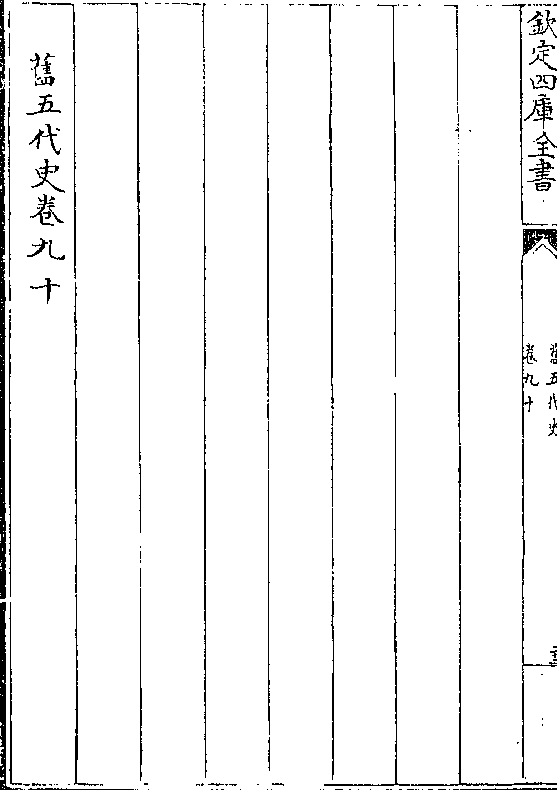 欽定四庫全書
舊五代史
卷九十
舊五代史卷九十